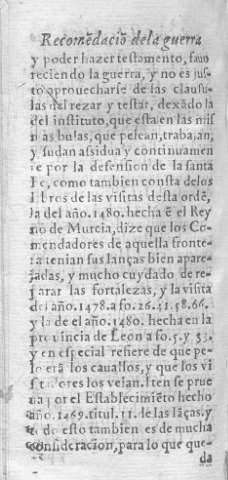 Recomēdaciō dela guerra
y poder hazer testamento, fauo
reciendo la guerra, y no es jus-
to aprouecharse de las clausu-
las del rezar y testar, dexādo la
del instituto, que esta en las mis
mas bulas, que pelean, trabajan,
y sudan assidua y continuamen
te por la defension de la santa
Fe, como tambien consta delos
libros de las visitas desta ordē,
la del año. 1480. hecha ē el Rey
no de Murcia, dize que los Co-
mendadores de aquella fronte-
ra tenian sus lanças bien apare-
jadas, y mucho cuydado de re-
parar las fortalezas, y la visita
del año. 1478. a fo. 26. 41. 58. 66.
y la de el año. 1480. hecha en la
prouincia de Leon a fo. 5. y 33.
y en especial refiere de que pe-
lo erā los cauallos, y que los vi
sitadores los veian. Iten se prue
ua por el Establecimiēto hecho
año. 1469. titul. 11. de las lāças. y
de esto tambien es de mucha
consideracion, para lo que que-
da